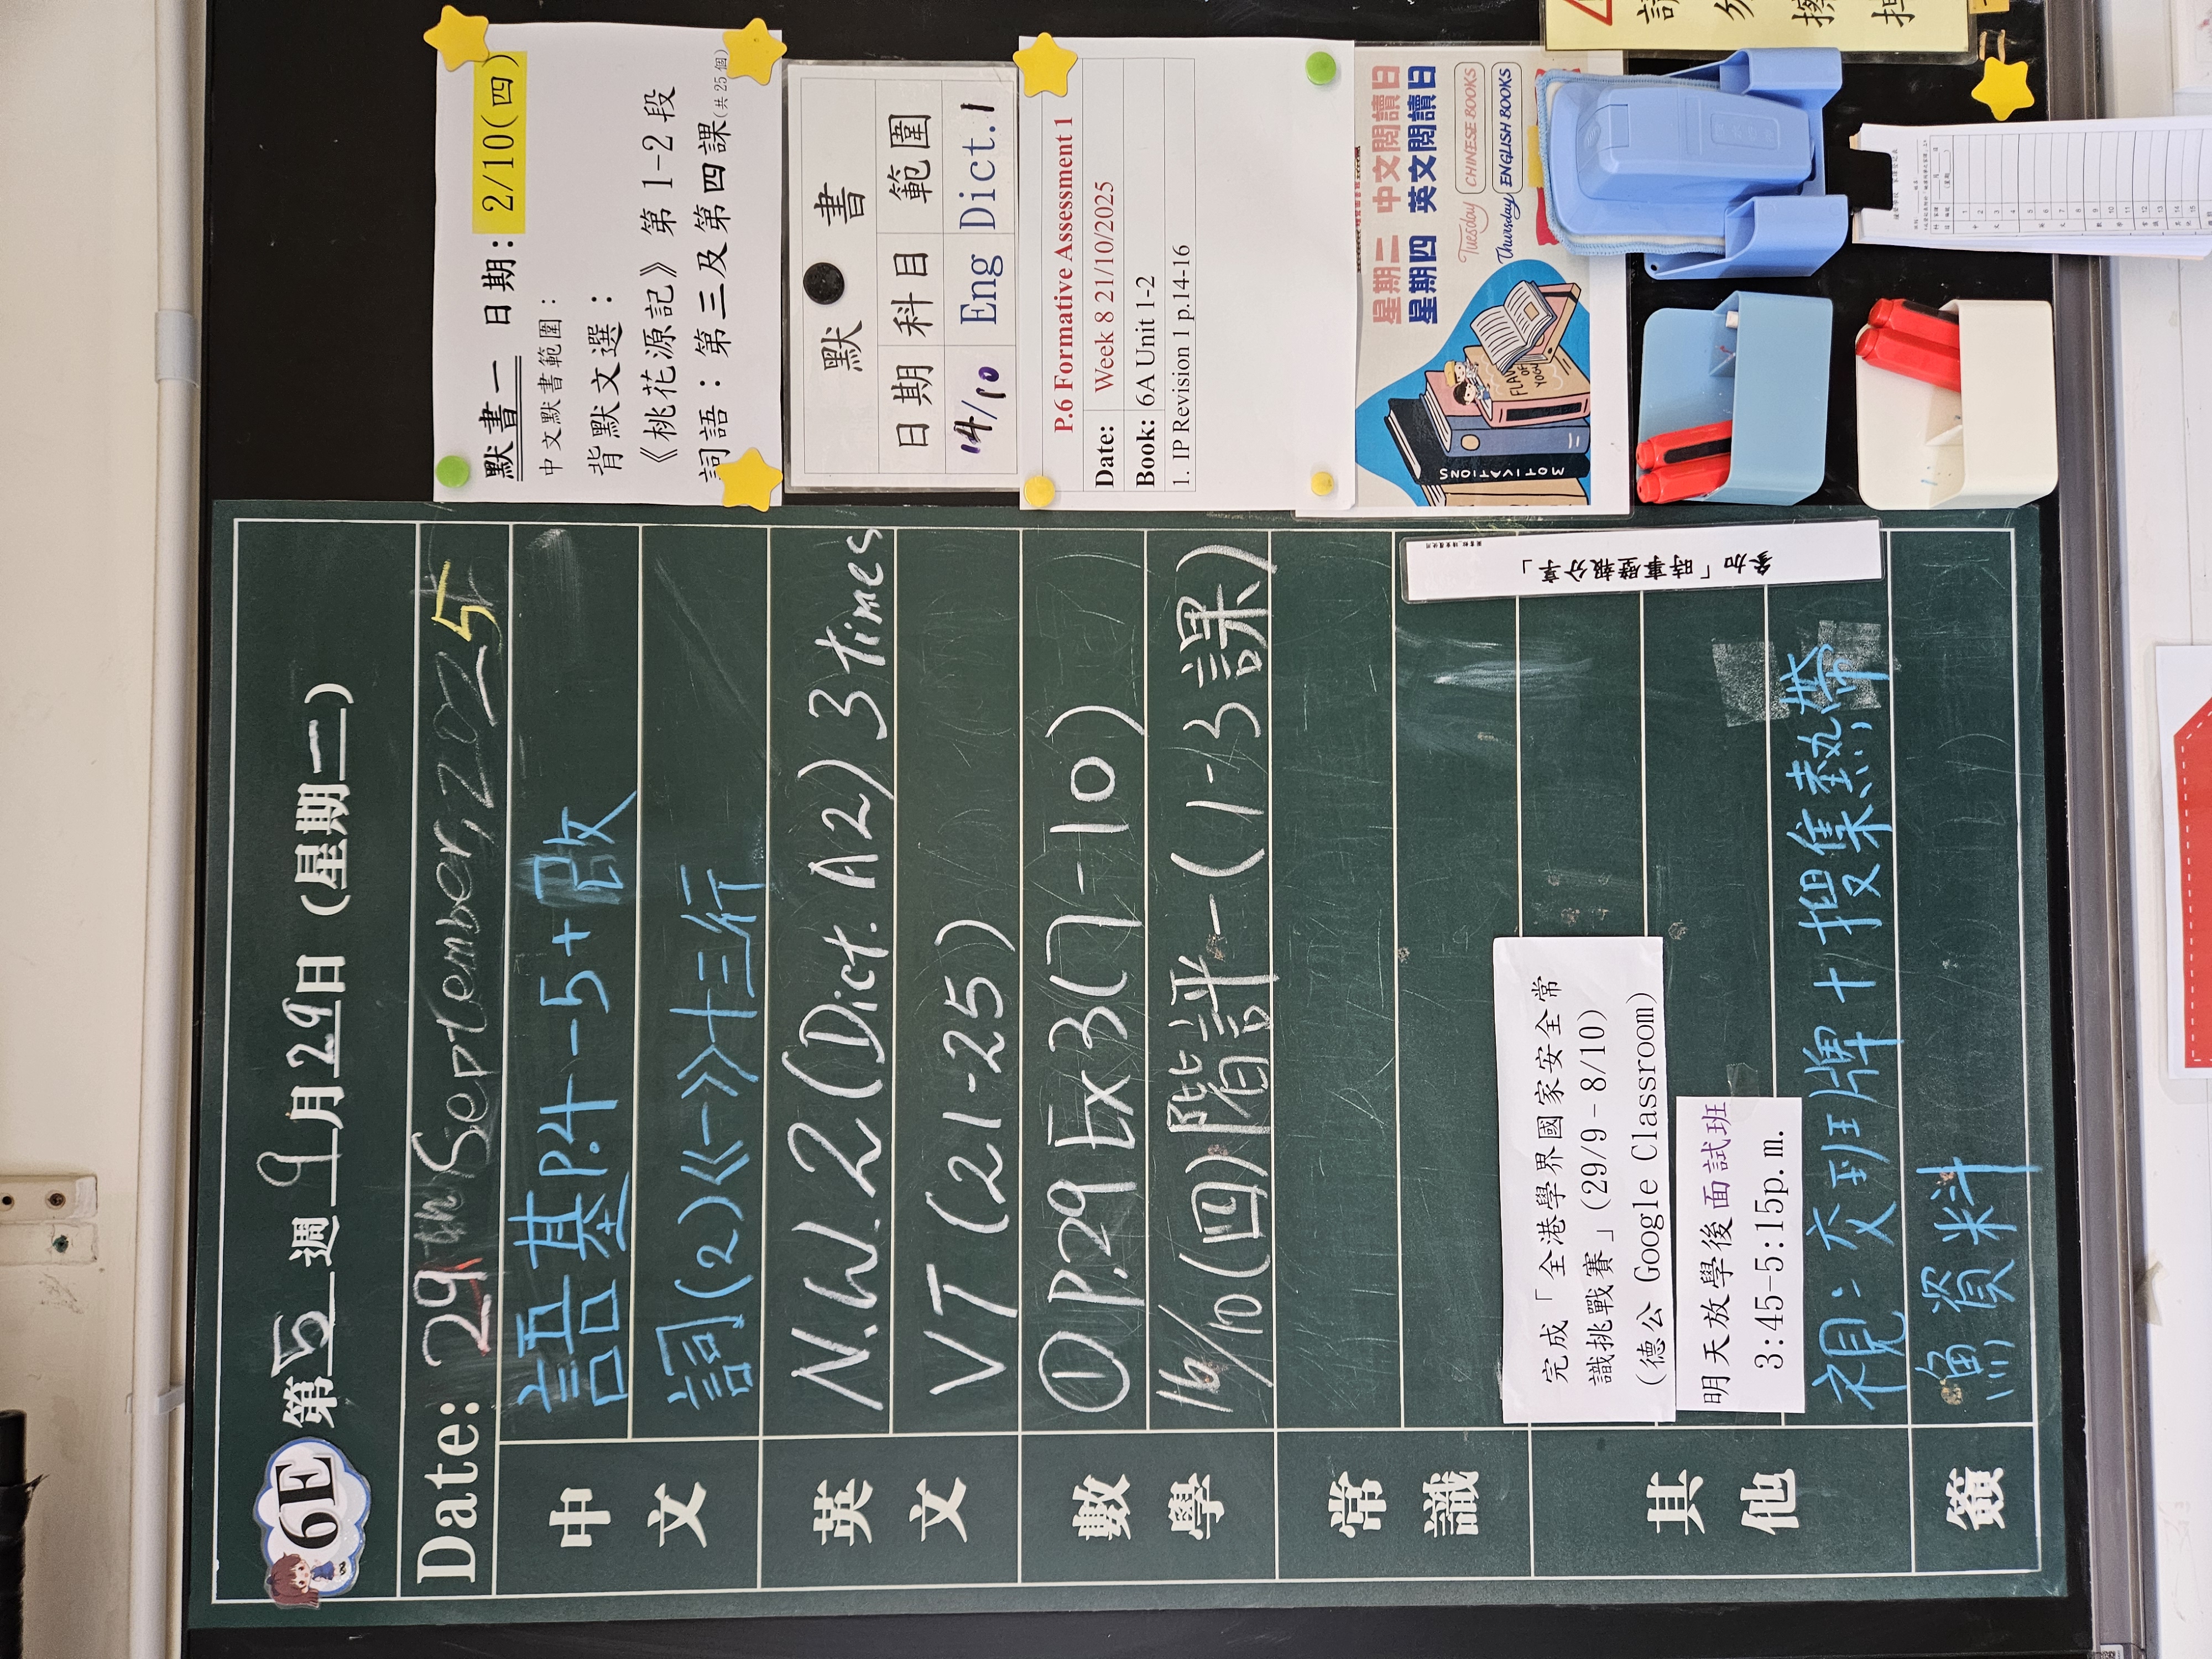 6E 第5週 9月29日(星期一)
Date: 29th September, 2025
中文
語基P.4-5+改
詞(2)《一》十三行
英文
N.W.2(Dict. A2) 3 times
VT(21-25)
數學
①P.29 Ex3(7-10)
16/10(四)階評一(1-3課)
常識
其他
參加「時事壁報分享」
完成「全港學界國家安全常
識挑戰賽」(29/9-8/10)
(德公 Google Classroom)
明天放學後面試班
3:45-5:15p.m.
視：交班牌+搜集熱帶
簽
魚資料
默書一 日期：2/10(四)
中文默書範圍：
背默文選：
《桃花源記》第1-2段
詞語：第三及第四課(共25個)
默書
日期 科目 範圍
14/10 Eng Dict.1
P.6 Formative Assessment 1
Date: Week 8 21/10/2025
Book: 6A Unit 1-2
1. IP Revision 1 p.14-16
星期二 中文閱讀日
星期四 英文閱讀日
Tuesday CHINESE BOOKS
Thursday ENGLISH BOOKS
MOTIVATIONS